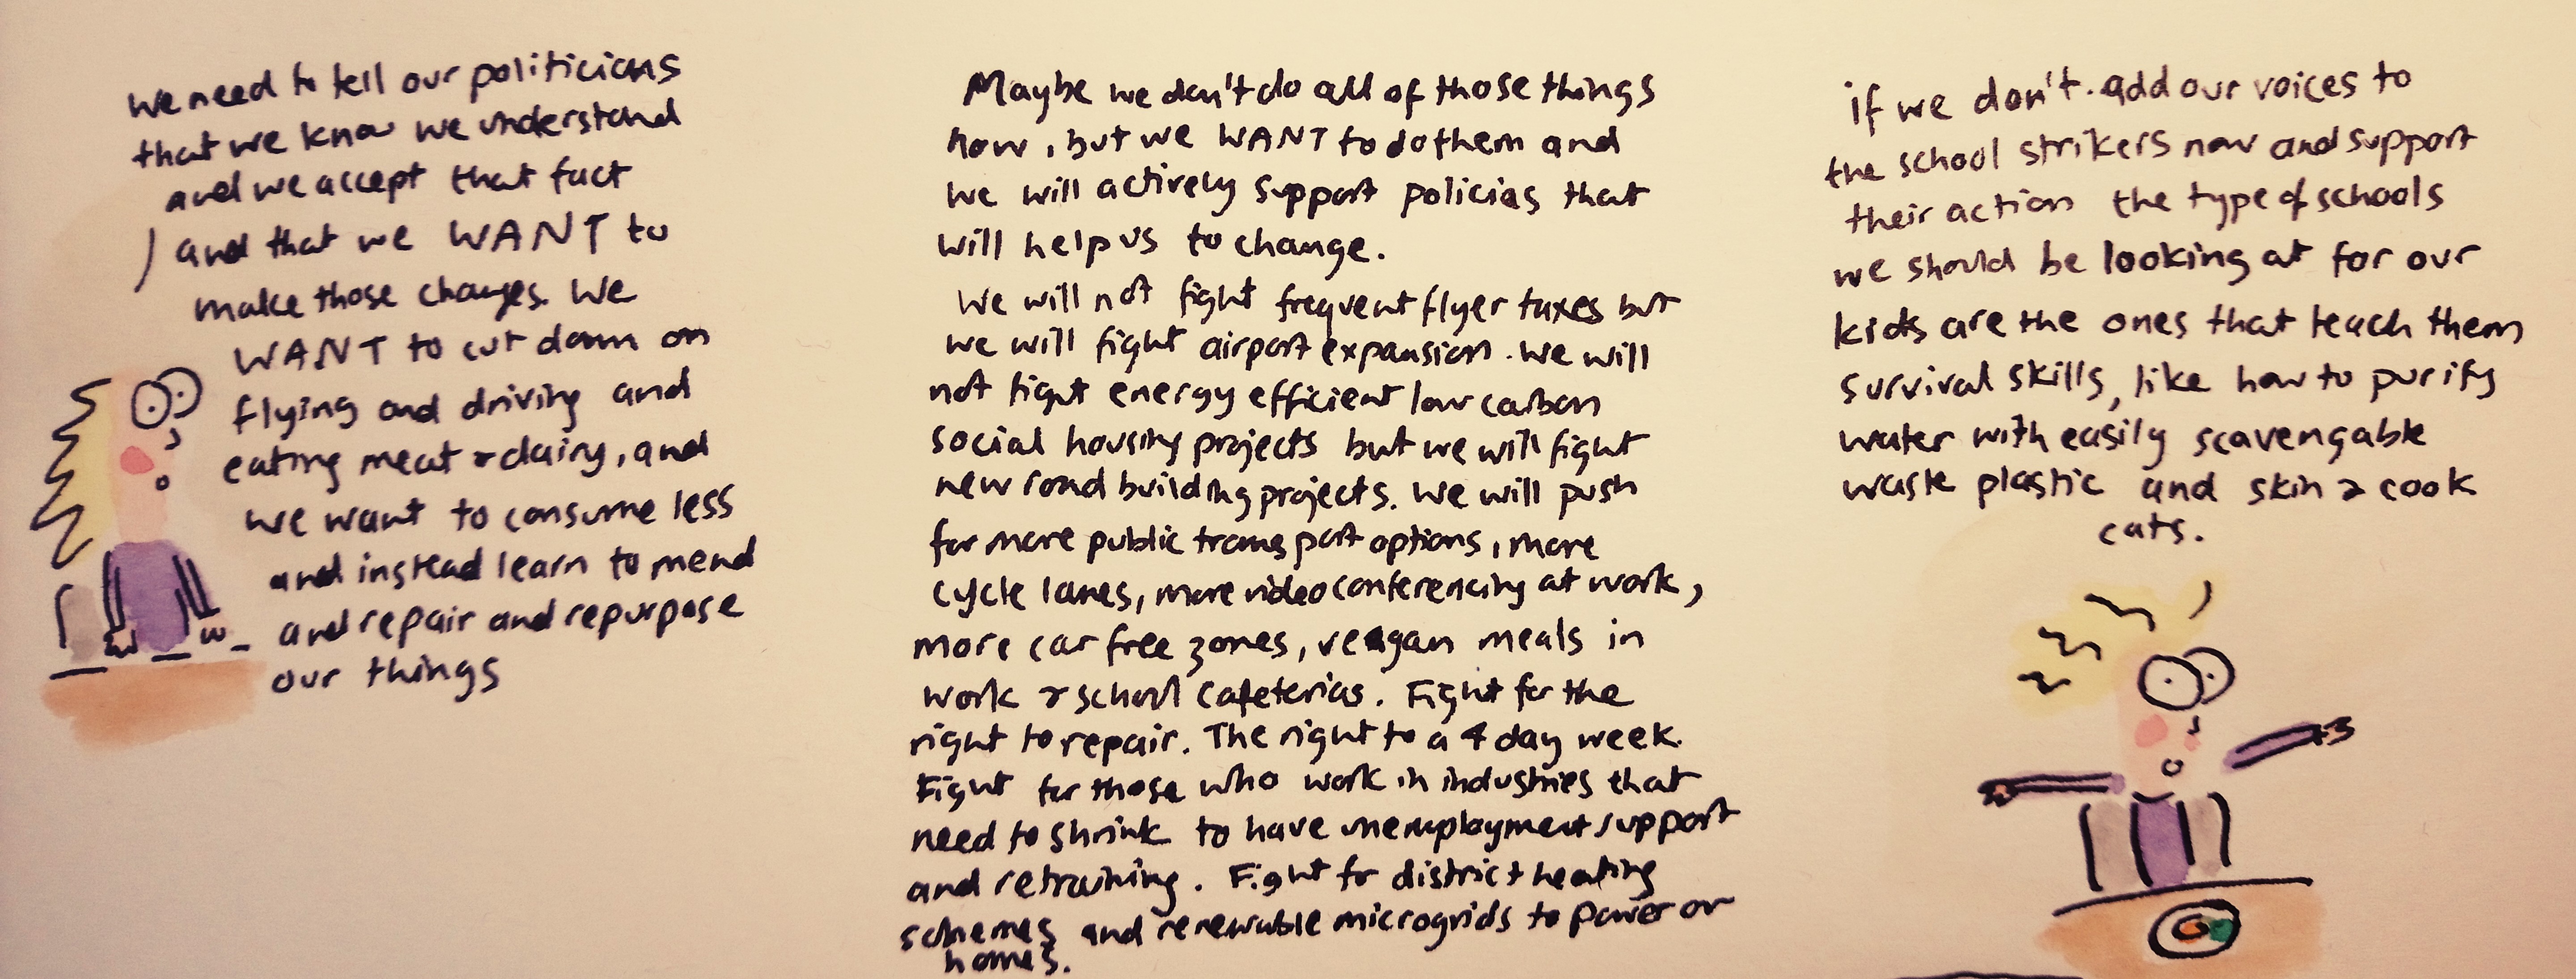 We need to tell our politicians
that we know we understand
and we accept that fact
and that we WANT to
make those changes. We
WANT to cut down on
flying and driving and
eating meat & dairy, and
we want to consume less
and instead learn to mend
and repair and repurpose
our things
Maybe we don't do all of those things
now, but we WANT to do them and
we will actively support policies that
will help us to change.
We will not fight frequent flyer taxes but
we will fight airport expansion. We will
not fight energy efficient low carbon
social housing projects but we will fight
new road building projects. We will push
for more public transport options, more
cycle lanes, more video conferencing at work,
more car free zones, vegan meals in
work & school cafeterias. Fight for the
right to repair. The right to a 4 day week.
Fight for those who work in industries that
need to shrink to have unemployment support
and retraining. Fight for district heating
schemes and renewable microgrids to power our
homes.
if we don't add our voices to
the school strikers now and support
their action the type of schools
we should be looking at for our
kids are the ones that teach them
survival skills, like how to purify
water with easily scavengable
waste plastic and skin & cook
cats.